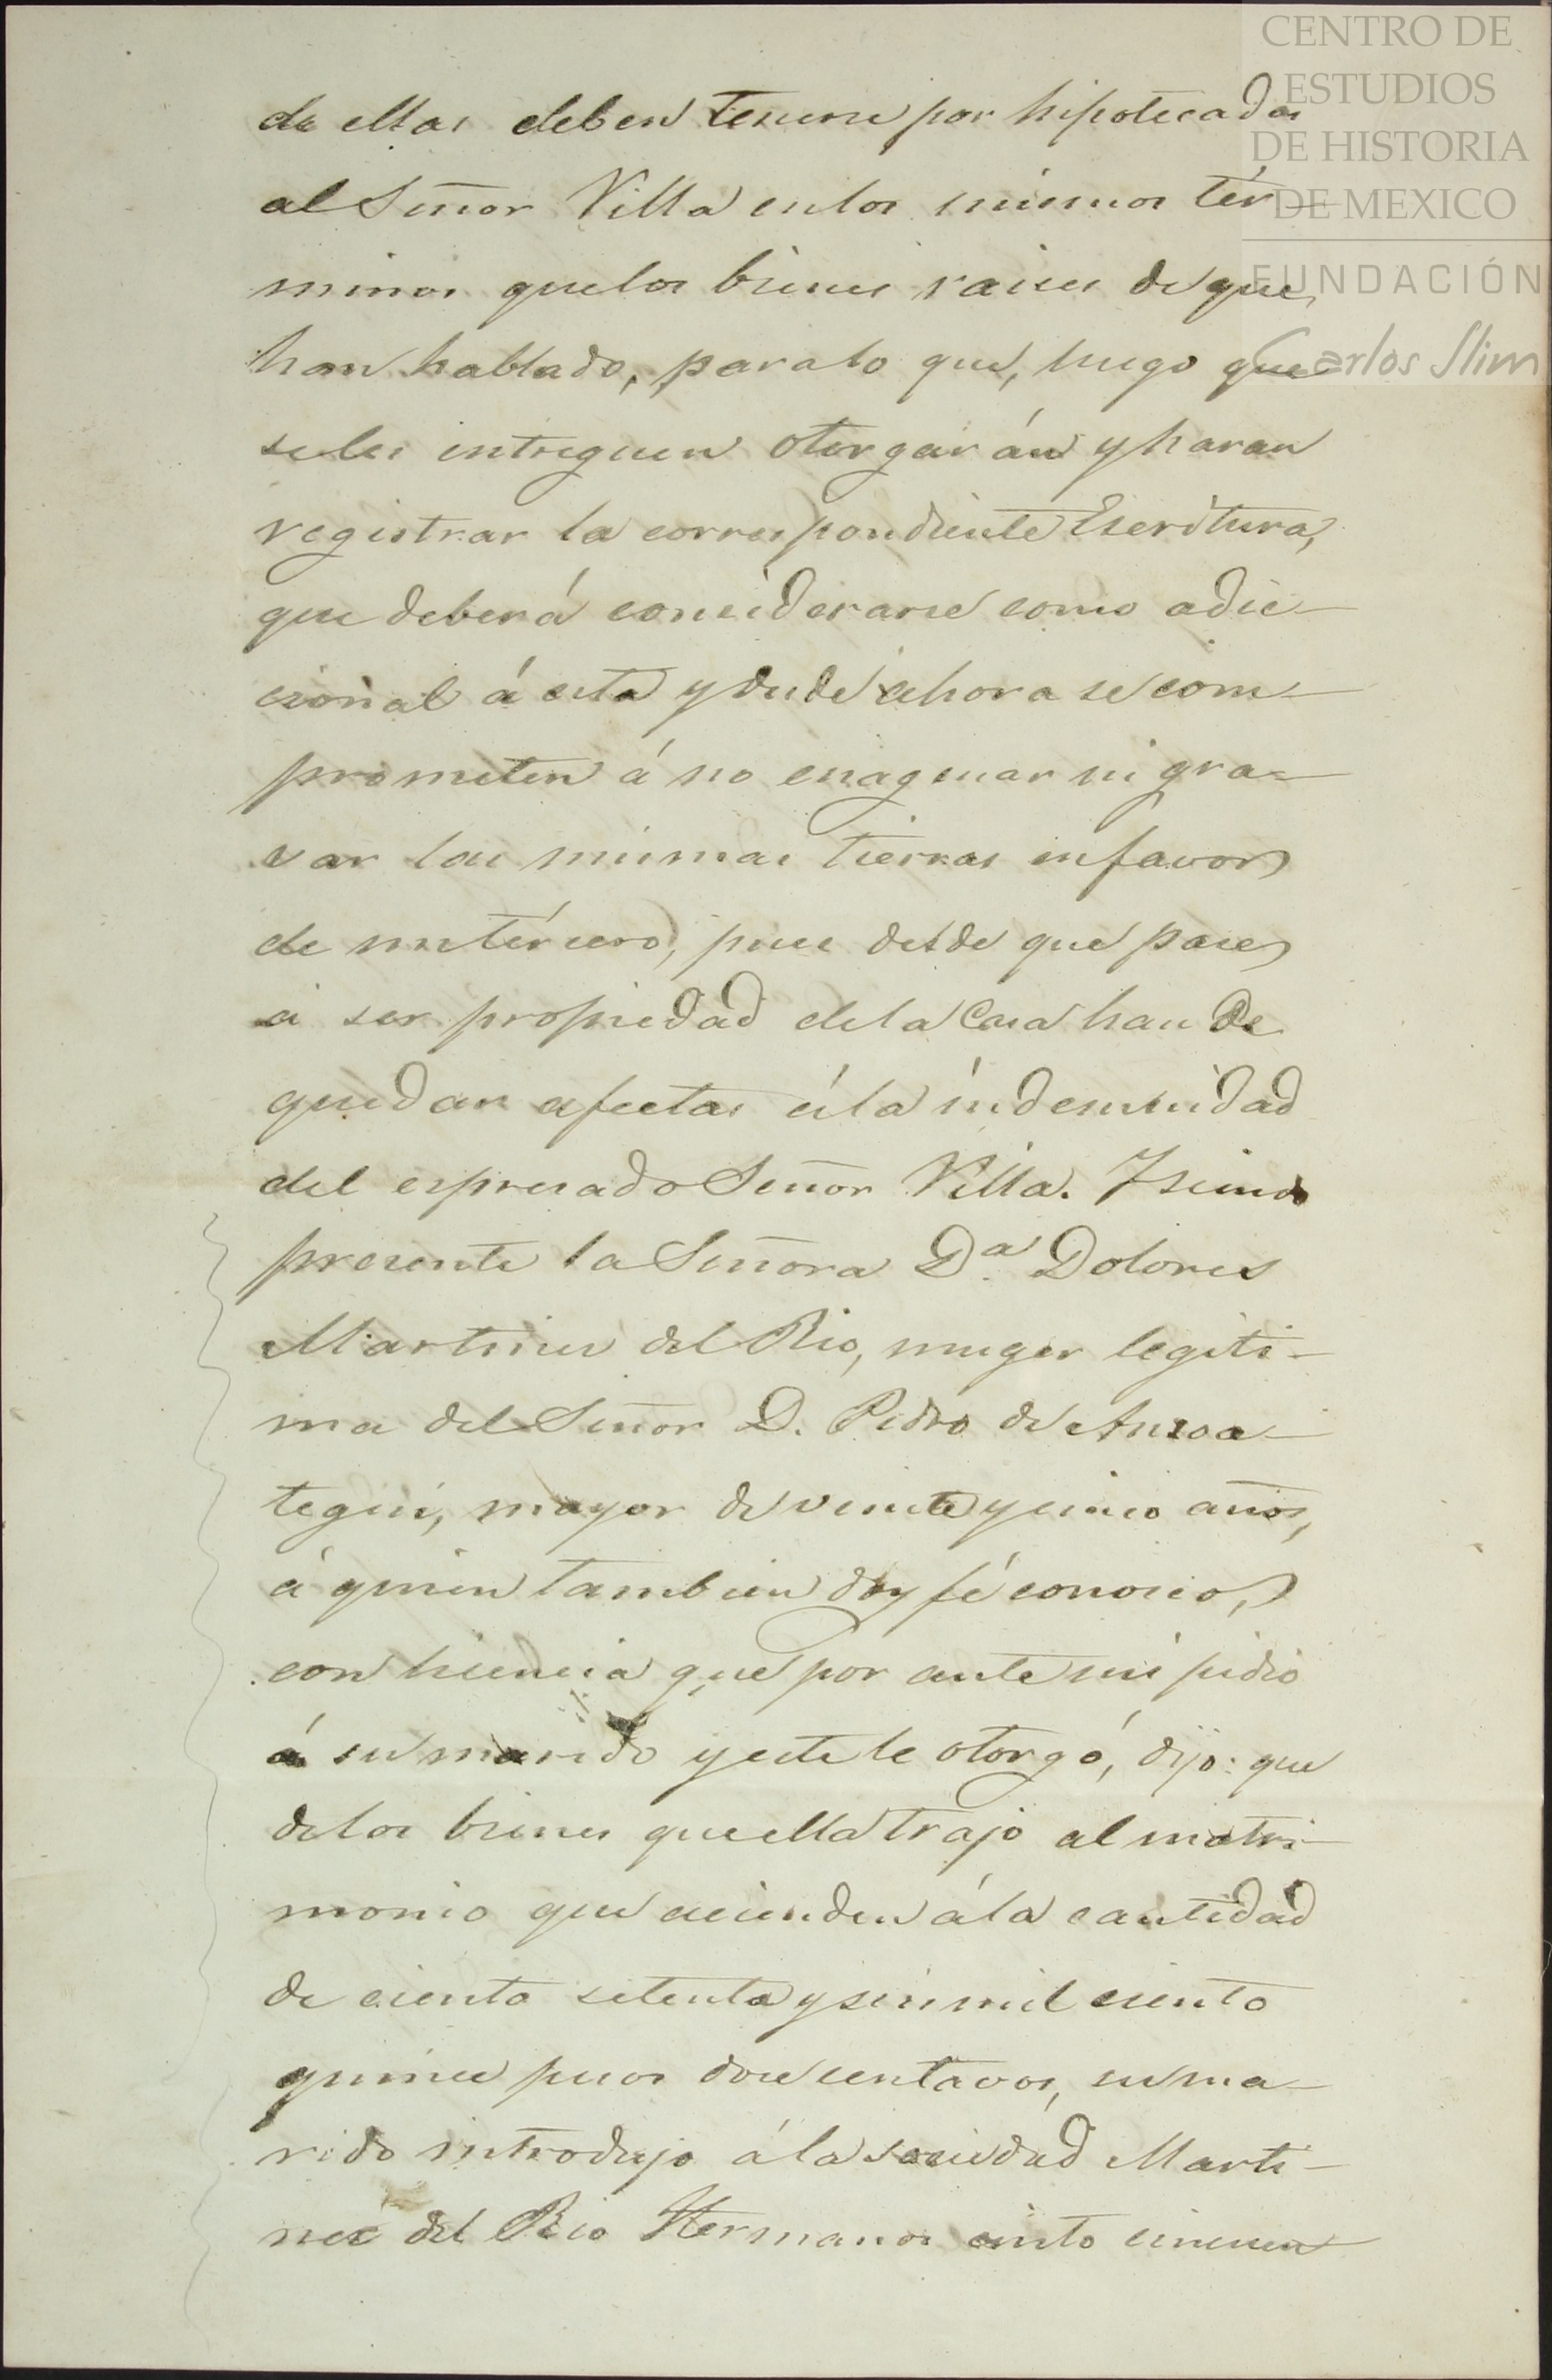 CENTRO DE
ESTUDIOS
DE HISTORIA
DE MEXICO
FUNDACIÓN
Carlos Slim
de ellas deben tenerse por hipotecadas
al Señor Villa en los mismos tér-
minos que los bienes raices de que
han hablado, para lo que, luego que
se les entreguen otorgarán y haran
registrar la correspondiente Escritura,
que deberá considerarse como adic-
cional á esta y desde ahora se com-
prometen á no enagenar ni gra-
var las mismas tierras en favor
de un tércero, pues desde que pasen
á ser propiedad de la Casa han de
quedar afectas á la indemnidad
del espresado Señor Villa. Y siendo
presente la Señora Dª Dolores
Martinez del Rio, muger legiti-
ma del Señor D. Pedro de Anzoa-
tegui, mayor de veinte y cinco años,
á quien tambien doy fé conozco,
con licencia que por ante mi pidió
á su marido y este le otorgó, dijo: que
de los bienes que ella trajo al matri-
monio que acienden á la cantidad
de ciento setenta y seis mil ciento
quince pesos doce centavos, su ma-
rido introdujo á la sociedad Marti-
nez del Rio Hermanos ciento cincuen